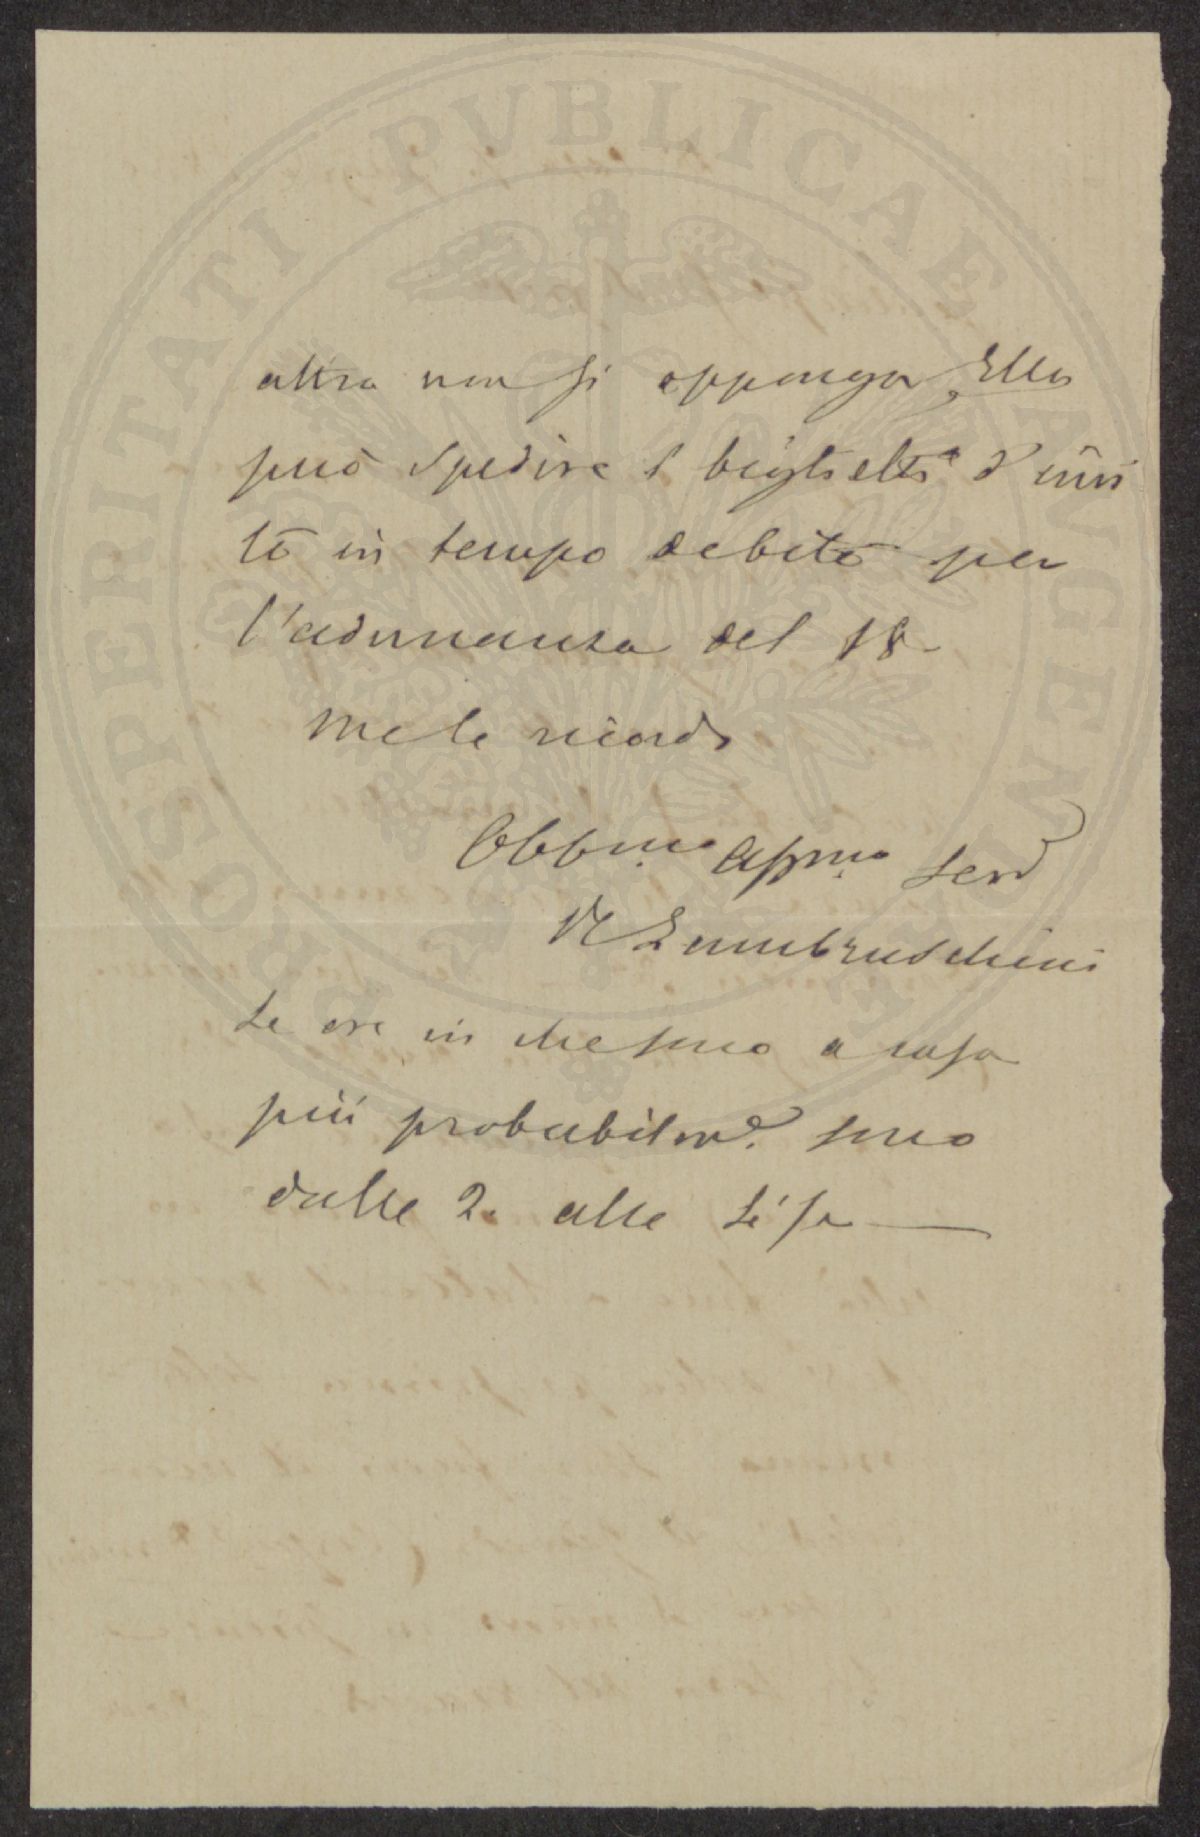 PROSPERITATI PVBLICAE AVGENDAE
altro non si opponga Ella
può spedire i biglietti d'invi
to in tempo debito per
l'adunanza del 18
Me le ricordo
Obbmo Affmo Serv
R Lambruschini
Le ore in che sono a casa
più probabilme. sono
dalle 2. alle